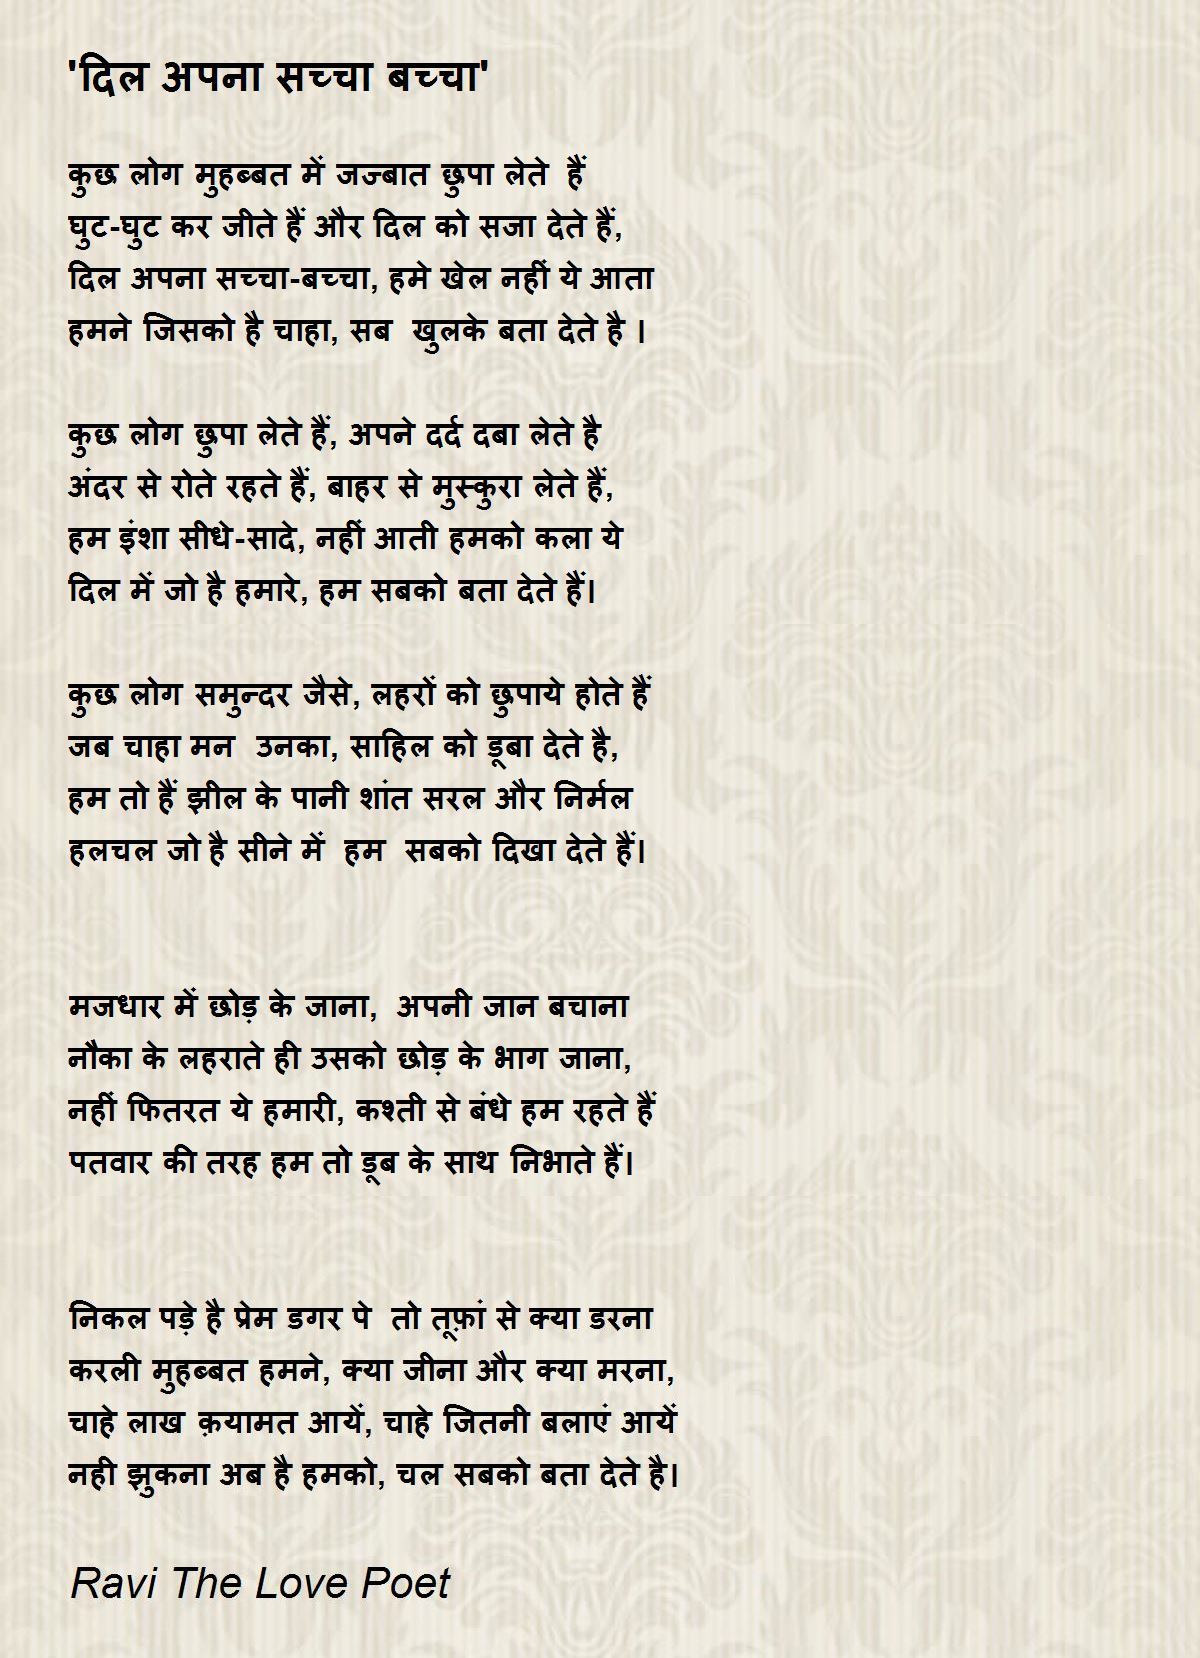 'दिल अपना सच्चा बच्चा'
कुछ लोग मुहब्बत में जज्बात छुपा लेते हैं
घुट-घुट कर जीते हैं और दिल को सजा देते हैं,
दिल अपना सच्चा-बच्चा, हमे खेल नहीं ये आता
हमने जिसको है चाहा, सब खुलके बता देते है ।
कुछ लोग छुपा लेते हैं, अपने दर्द दबा लेते है
अंदर से रोते रहते हैं, बाहर से मुस्कुरा लेते हैं,
हम इंशा सीधे-सादे, नहीं आती हमको कला ये
दिल में जो है हमारे, हम सबको बता देते हैं।
कुछ लोग समुन्दर जैसे, लहरों को छुपाये होते हैं
जब चाहा मन उनका, साहिल को डूबा देते है,
हम तो हैं झील के पानी शांत सरल और निर्मल
हलचल जो है सीने में हम सबको दिखा देते हैं।
मजधार में छोड़ के जाना, अपनी जान बचाना
नौका के लहराते ही उसको छोड़ के भाग जाना,
नहीं फितरत ये हमारी, कश्ती से बंधे हम रहते हैं
पतवार की तरह हम तो डूब के साथ निभाते हैं।
निकल पड़े है प्रेम डगर पे तो तूफ़ां से क्या डरना
करली मुहब्बत हमने, क्या जीना और क्या मरना,
चाहे लाख क़यामत आयें, चाहे जितनी बलाएं आयें
नही झुकना अब है हमको, चल सबको बता देते है।
Ravi The Love Poet